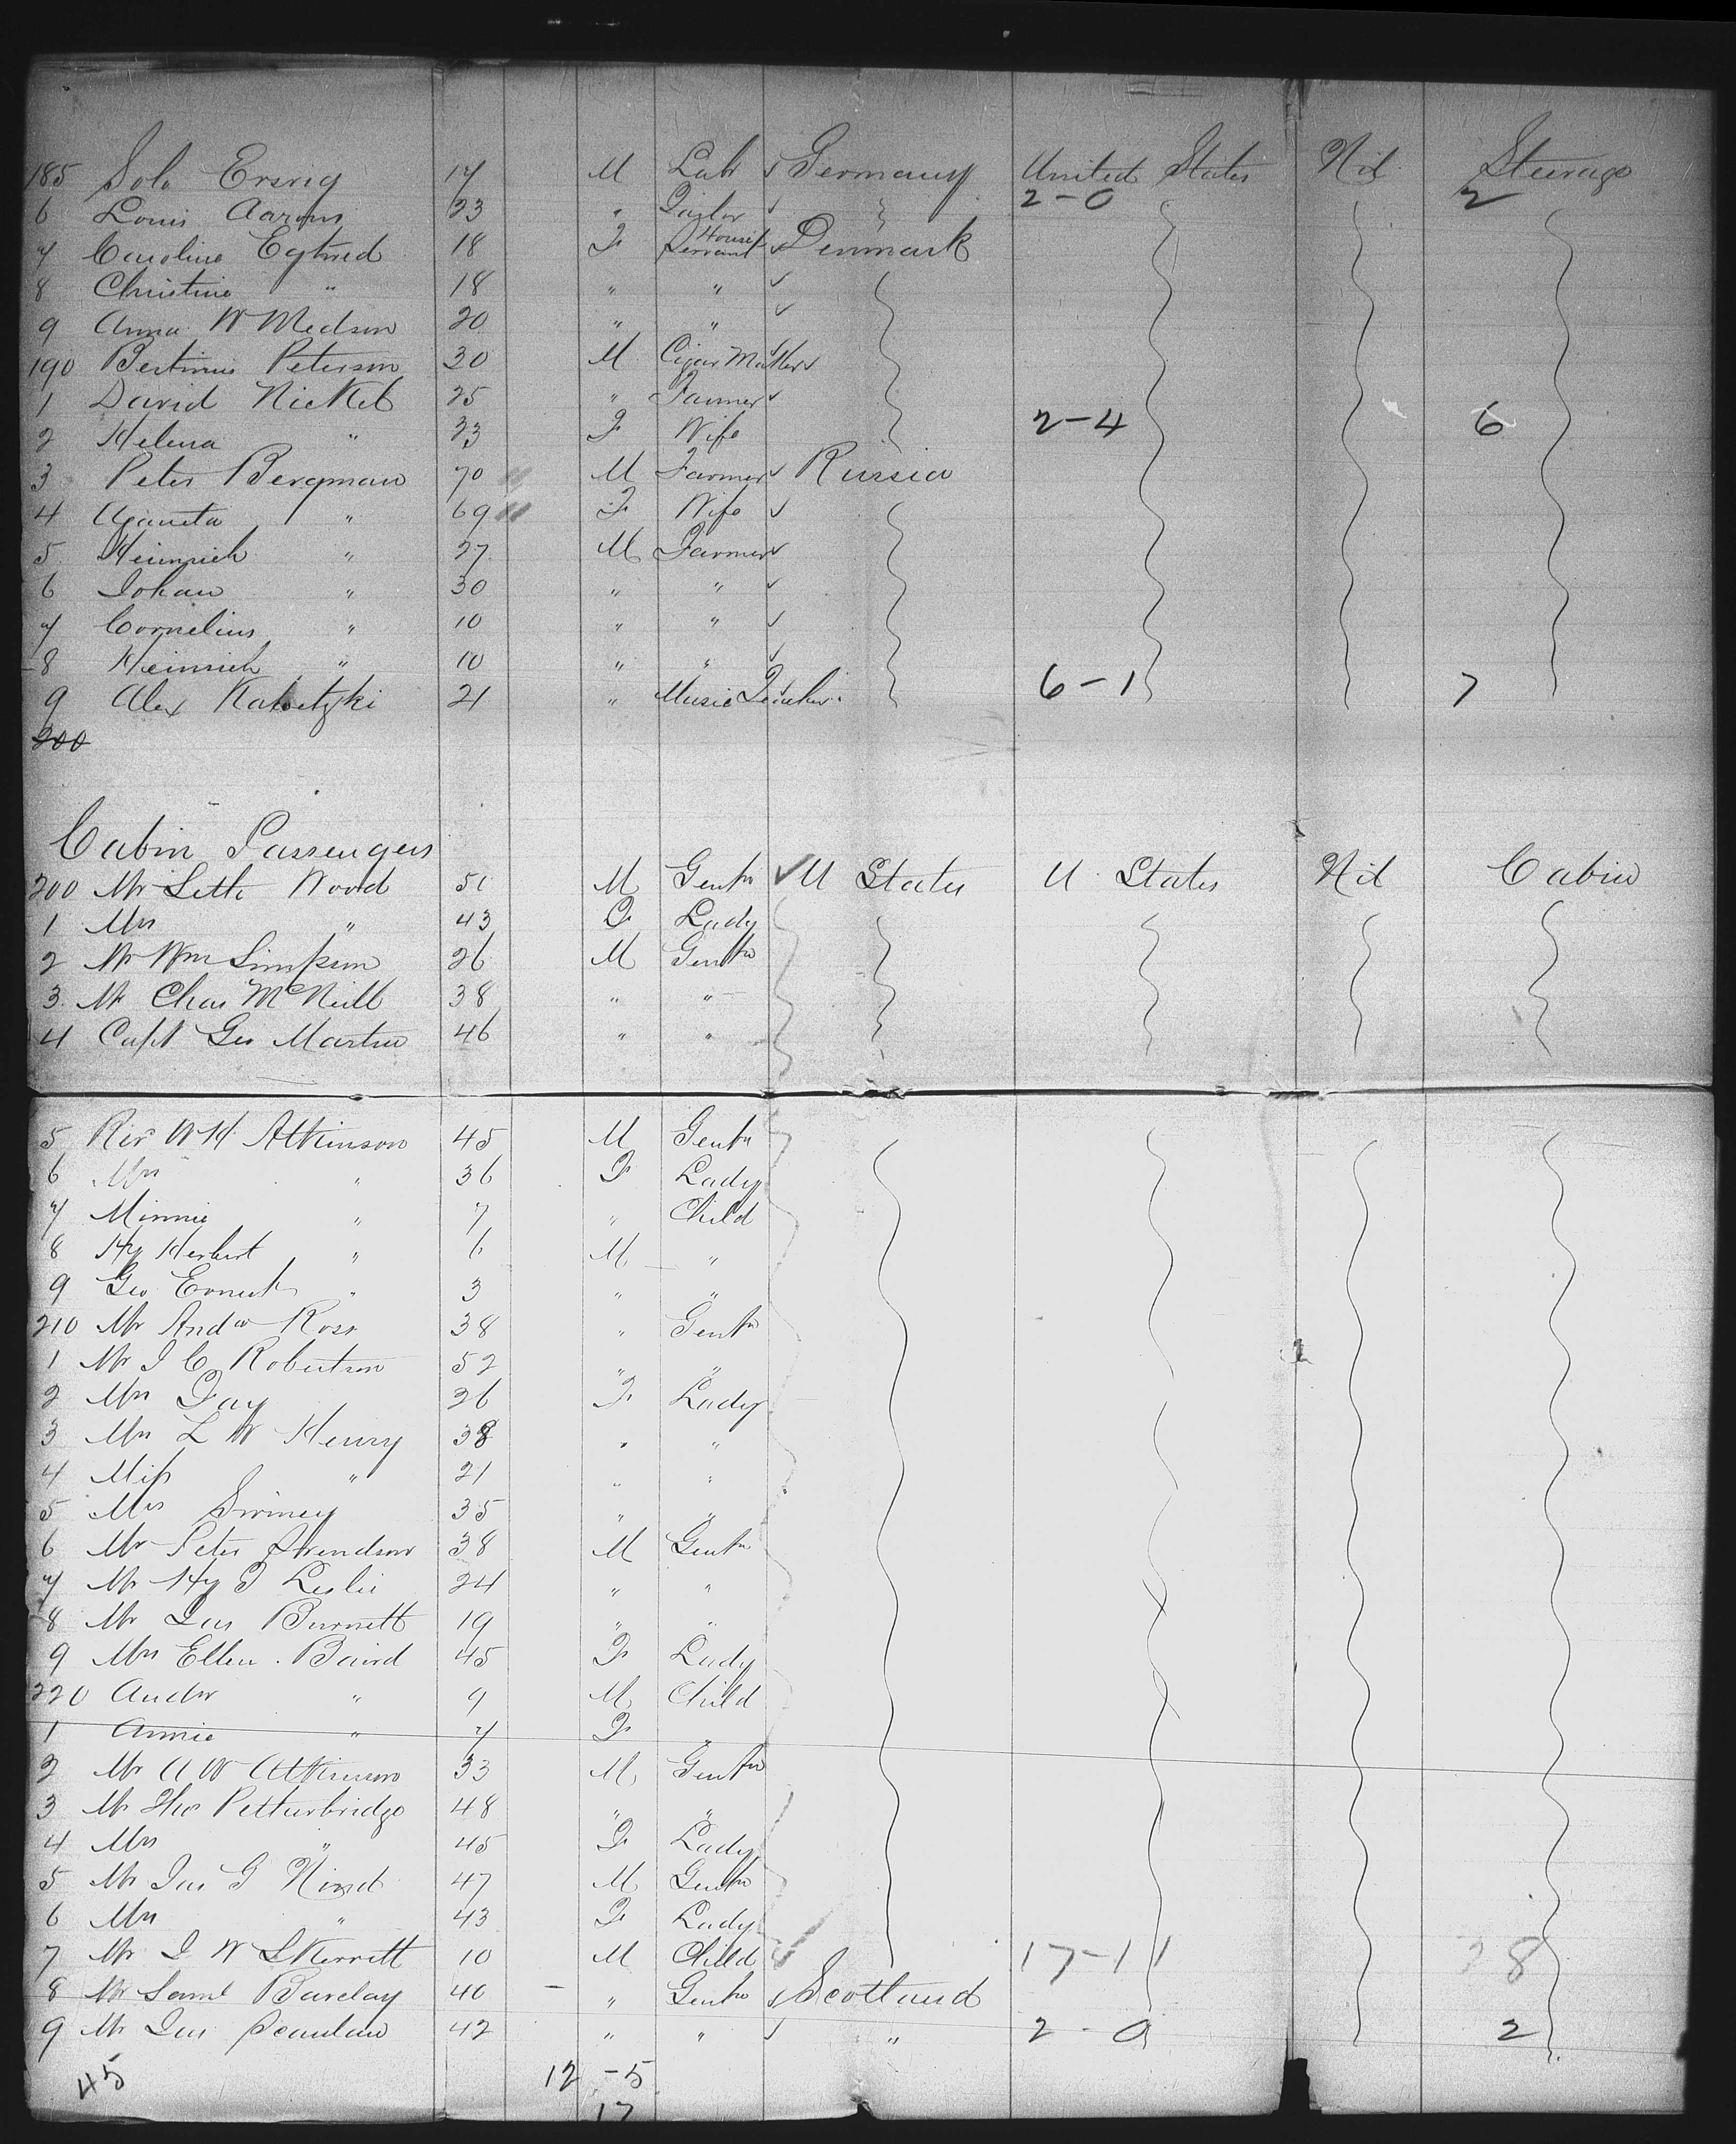 185 Solo Ersrig 17 M Lab ✓ Germany United States Nil Steerage
6 Louis Aarons 23 " Tailor ✓ 2-0 2
7 Caroline Egtved 18 F House Servant ✓ Denmark
8 Christine " 18 " " ✓
9 Anna W Madson 20 " " ✓
190 Bertinus Peterson 30 M Cigar Maker ✓
1 David Nickel 25 " Farmer ✓
2 Helena " 23 F Wife 2-4 6
3 Peter Bergman 70 M Farmer ✓ Russia
4 Aganeta " 69 F Wife ✓
5 Heinrich " 27 M Farmer ✓
6 Johan " 30 " " ✓
7 Cornelius " 10 " " ✓
8 Heinrich " 10 " " ✓
9 Alex 21 " Music Teacher 6-1 7
200
Cabin Passengers
200 Mr Seth Wood 51 M Gentn ✓ U States U. States Nil Cabin
1 Mrs " 43 F Lady
2 Mr Wm Simpson 26 M Gentn
3. Mr Chas McNeill 38 " "
4 Capt Geo Martin 46 " "
5 Revd W H Atkinson 45 M Gentn
6 Mrs " 36 F Lady
7 Minnie " 7 " Child
8 Hy Herbert " 6 M "
9 Geo Ernest " 3 " "
210 Mr Andw Ross 38 " Gentn
1 Mr J C Robertson 52 " "
2 Mrs Day 26 F Lady
3 Mrs L W Henry 38 " "
4 Miss " 21 " "
5 Mrs Swiney 35 " "
6 Mr Peter 38 M Gentn
7 Mr Hy J Leslie 24 " "
8 Mr Jas Burnett 19 " "
9 Mrs Ellen Baird 45 F Lady
220 Andw " 9 M Child
1 Annie " 7 F "
2 Mr A W Atkinson 33 M Gentn
3 Mr Thos Petturbridge 48 " "
4 Mrs " 45 F Lady
5 Mr Jas G Hind 47 M Gentn
6 Mrs " 43 F Lady
7 Mr J W Skerrett 10 M Child 17-11 28
8 Mr Saml Barclay 40 - " Gentn ✓ Scotland
9 Mr Jas Scanlan 42 " " ✓ " 2-0 2
45 12 -5
17